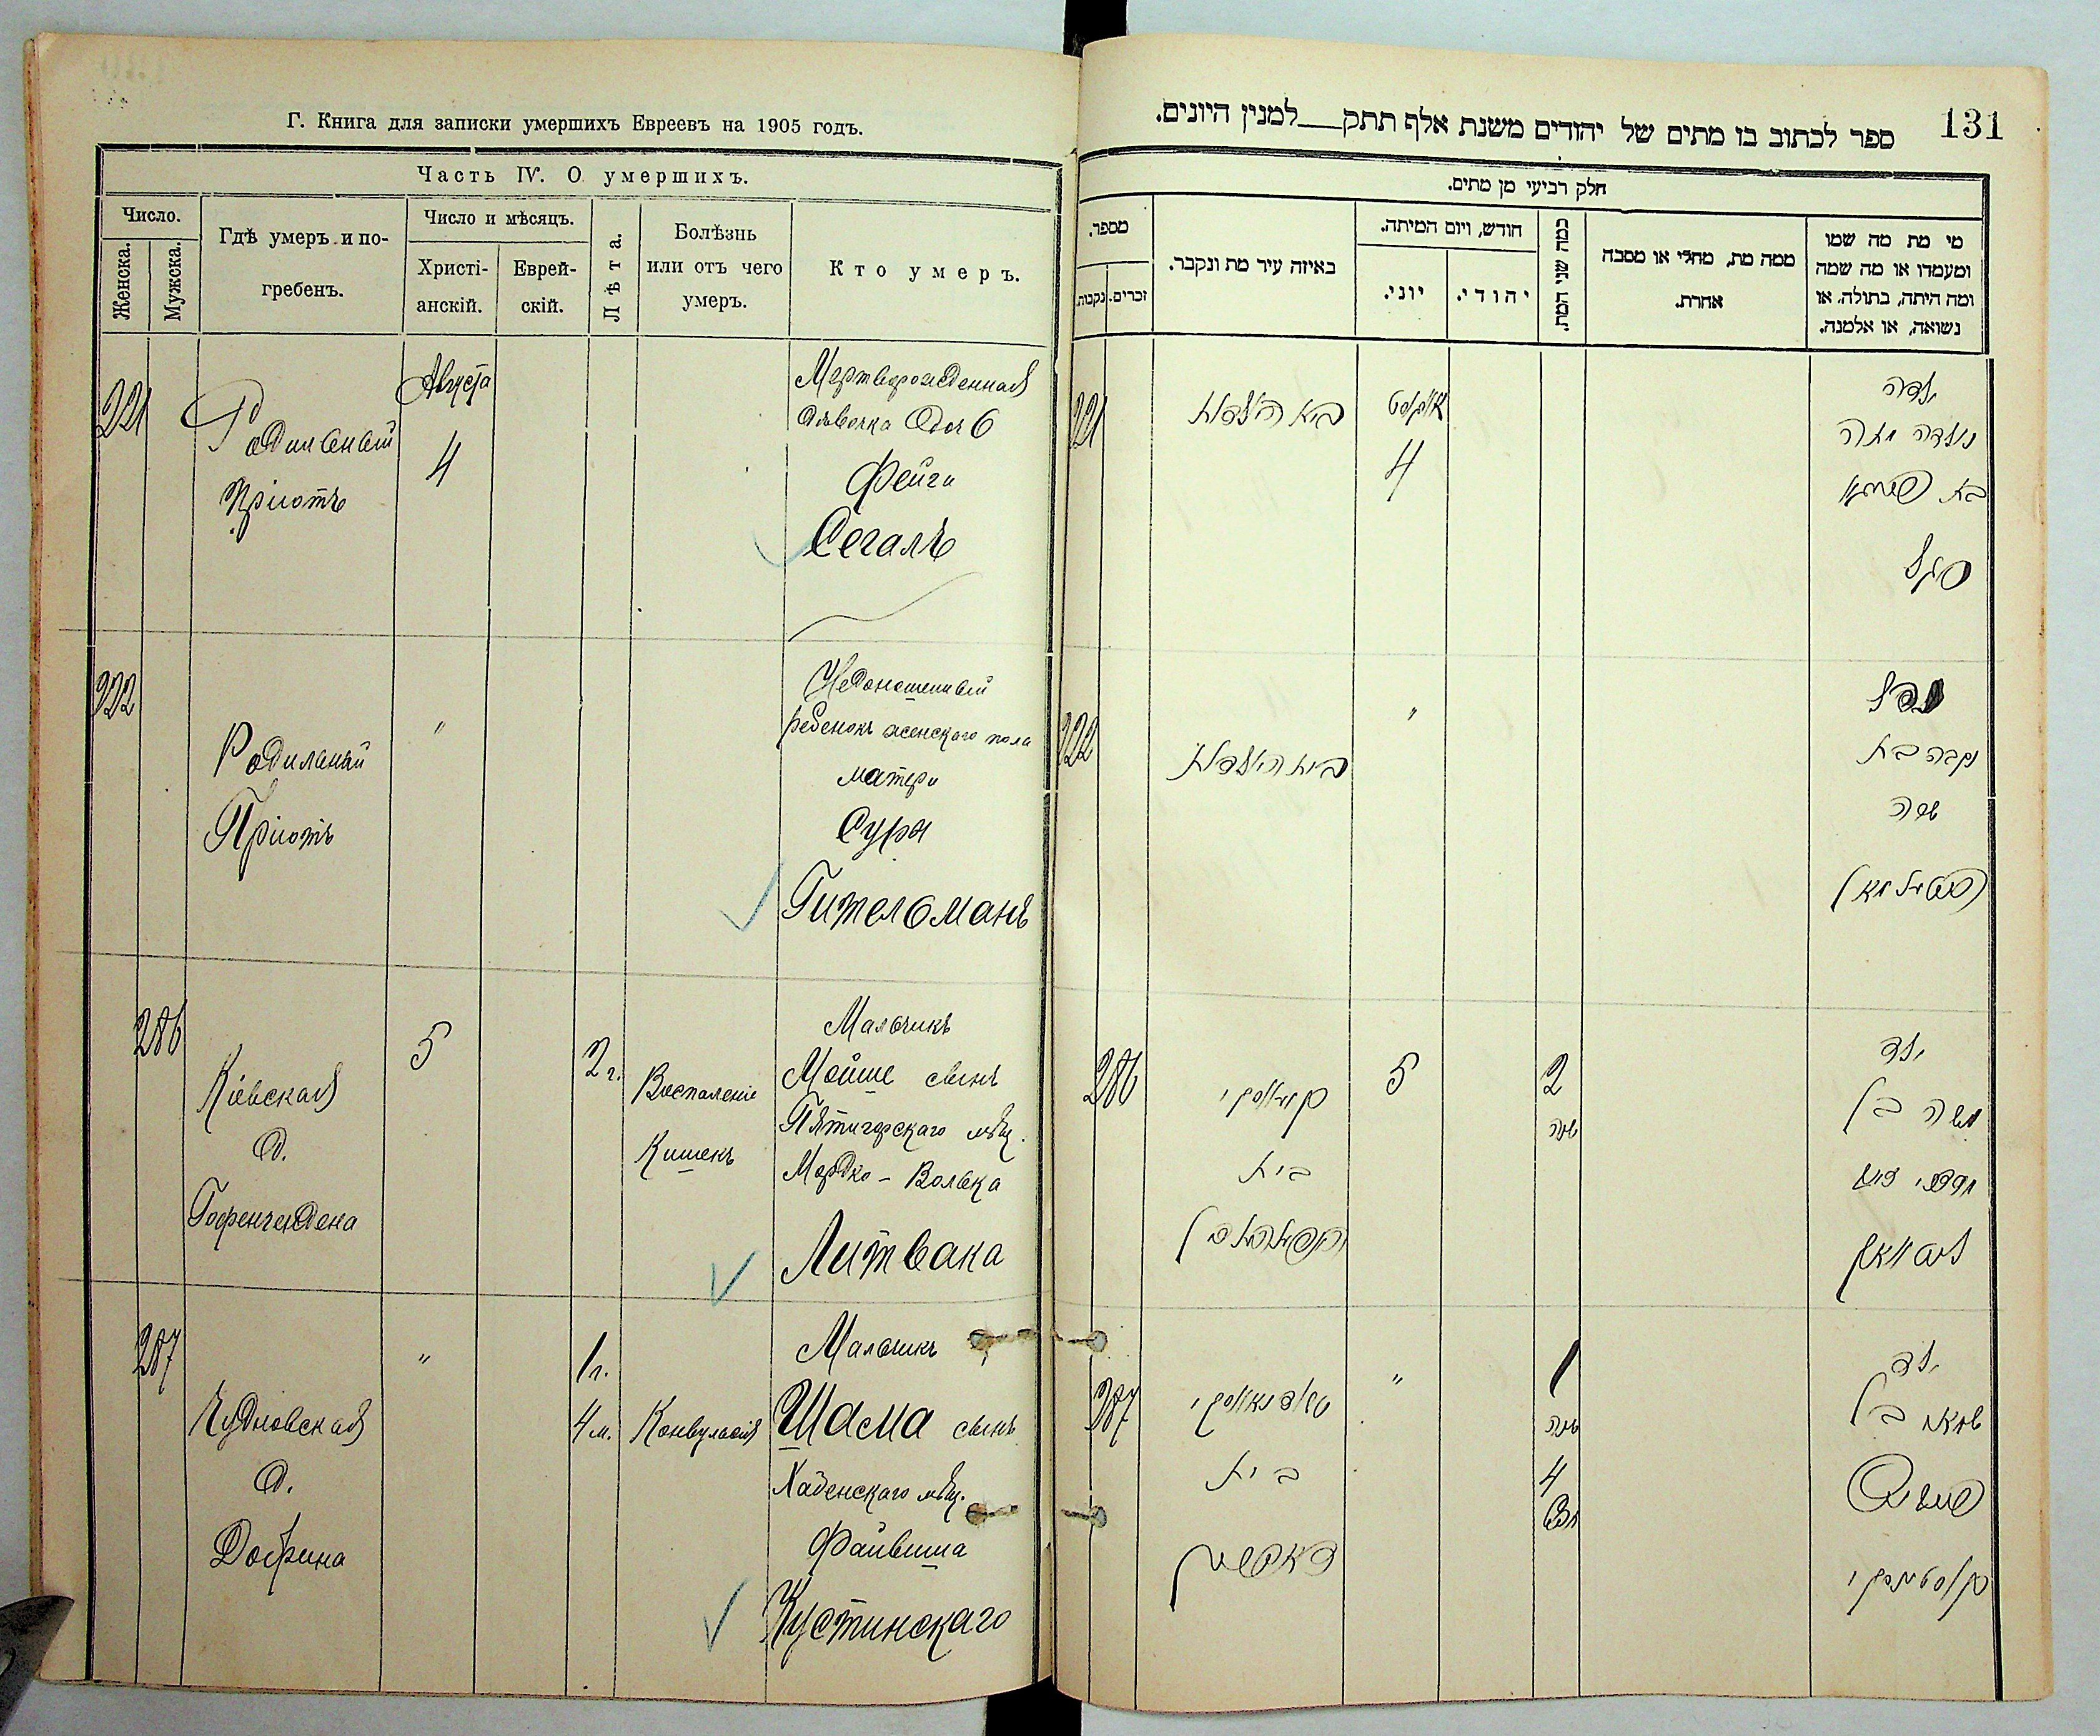 Г. Книга для записки умершихъ Евреевъ на 1905 годъ.
Часть IV. О умершихъ.
Число.
Женска.
Мужска.
Гдѣ умеръ и по-
гребенъ.
Число и мѣсяцъ.
Христі-
анскій.
Еврей-
скій.
Лѣта.
Болѣзнь
или отъ чего
умеръ.
Кто умеръ.
221
Родильный
Пріютъ
Августа
4
Мертворожденная
дѣвочка дочь
Фейги
Сегалъ
222
Родильный
Пріютъ
"
Недоношенный
ребенокъ женского пола
матери
Суры
Гительманъ
286
Кіевская
д.
5
2 г.
Воспаленіе
Кишекъ
Мальчикъ
Мойше сынъ
Пятигорскаго мѣщ.
Мордко-Волька
Литвака
287
Чудновская
д.
Добрина
"
1 г.
4 м.
Конвульсія
Мальчикъ
Шама сынъ
мѣщ.
Файвиша
Кустинскаго
131
ספר לכתוב בו מתים של יהודים משנת אלף תתק למנין היונים.
חלק רביעי מן מתים.
מספר.
נקבות.
זכרים.
באיזה עיר מת ונקבר.
חודש, ויום המיתה.
יוני.
יהודי.
כמה שני המת.
ממה מת, מחלי או מסבה
אחרת.
מי מת מה שמו
ומעמדו או מה שמה
ומה היתה, בתולה, או
נשואה, או אלמנה.
221
בית היולדות
אווגוסט
4
ילדה
נולדה מתה
בת פייגא
סגל
222
בית היולדות
"
נפל
נקבה בת
שרה
גיטעלמאן
286
קיעווסקי
בית
5
2
שנה
ילד
משה בן
מרדכי
ליטוואק
287
טשודנאווסקי
בית
"
1
שנה
4
חדש
ילד
שמאי בן
פייוויש
קוסטינסקי